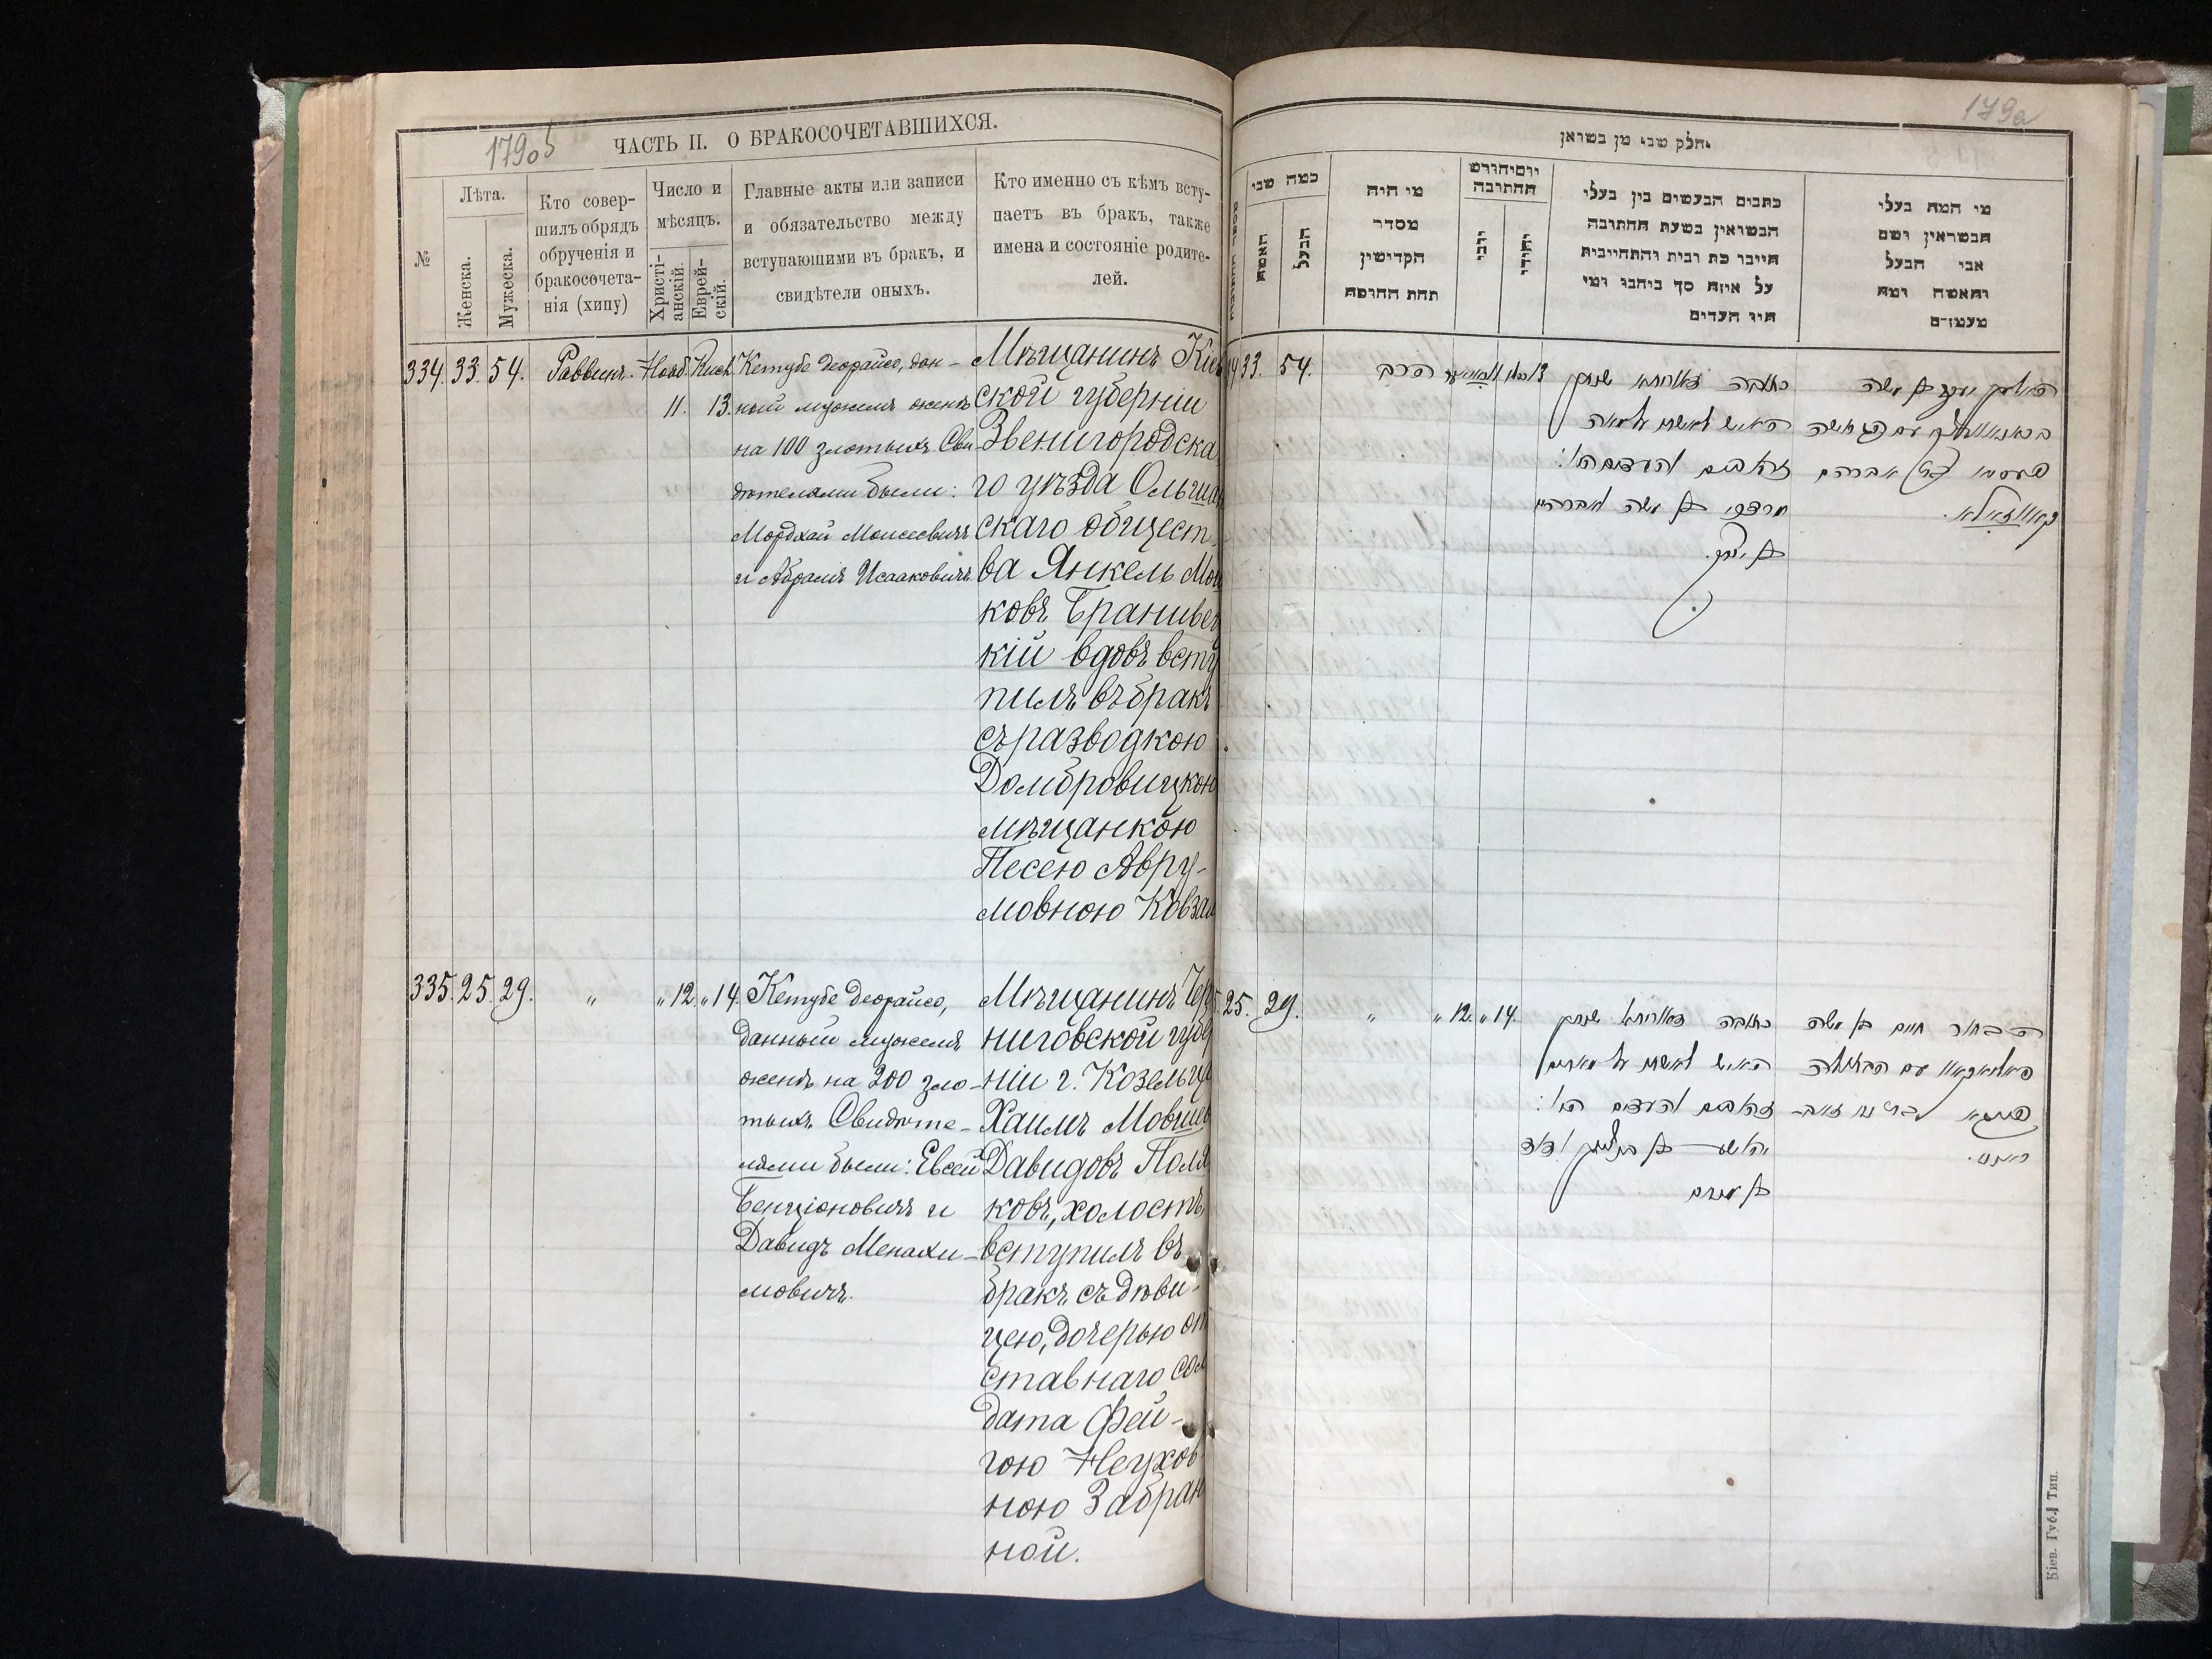 179об
ЧАСТЬ II. О БРАКОСОЧЕТАВШИХСЯ.
№
Лѣта.
Женска.
Мужеска.
Кто совер-
шилъ обрядъ
обрученія и
бракосочета-
нія (хипу)
Число и
мѣсяцъ.
Христі-
анскій.
Еврей-
скій.
Главные акты или записи
и обязательство между
вступающими въ бракъ, и
свидѣтели оныхъ.
Кто именно съ кѣмъ всту-
паетъ въ бракъ, также
имена и состояніе родите-
лей.
334. 33. 54. Раввинъ. Нояб. Кисл.
11. 13.
Кетубе деорайсо, дан-
ный мужемъ женѣ
на 100 злотыхъ Сви
дѣтелями были:
Мордхай Моисеевичъ
и Абрамъ Исааковичъ
Мѣщанинъ Кіев
ской губерніи
Звенигородска
го уѣзда Ольшан
скаго общест
ва Янкель Мош
ковъ Бранивец
кій вдовъ всту
пилъ въ бракъ
съ разводкою
Домбровицкою
мѣщанкою
Песею Авру-
мовною Ковзан
335. 25. 29. " " 12. " 14.
Кетубе деорайсо,
данный мужемъ
женѣ на 200 зло-
тыхъ Свидѣте-
лями были: Евсей
Бенціоновичъ и
Давидъ Менахи-
мовичъ.
Мѣщанинъ Чер
ниговской губер
ніи г. Козельца
Хаимъ Мовшев
Давидовъ Поля
ковъ, холостъ,
вступилъ въ
бракъ съ дѣви-
цею, дочерью от
ставнаго сол
дата Фей-
гою Неухов
ною Забран
ной.
179а
חלק שני מן נשואין
כמה שני
האשה
הבעל
מי היה
מסדר
הקדישין
תחת החופה
יום וחודש
החתונה
נוצרי
יהודי
כתבים הנעשים בין בעלי
הנשואין בשעת החתונה
חייבו כת ובית והתחייבות
על איזה סך ביחבו ומי
היו העדים
מי המה בעלי
הנשואין ושם
אבי הבעל
והאשה ומה
מעמדם
33. 54. הרב
כתובה דאורייתא שנתן
האיש לאשתו על מאה
זהובים והעדים הי׳:
מרדכי בן משה ואברהם
בן יצחק.
25. 29. " " 12. " 14.
הבחור חיים בן משה
פאליאקאוו עם הבתולה
כתובה דאורייתא שנתן
האיש לאשתו על מאתים
זהובים והעדים הי׳:
יהושע בן בנציון ודוד
בן מנחם
Кіев. Губ. Тип.